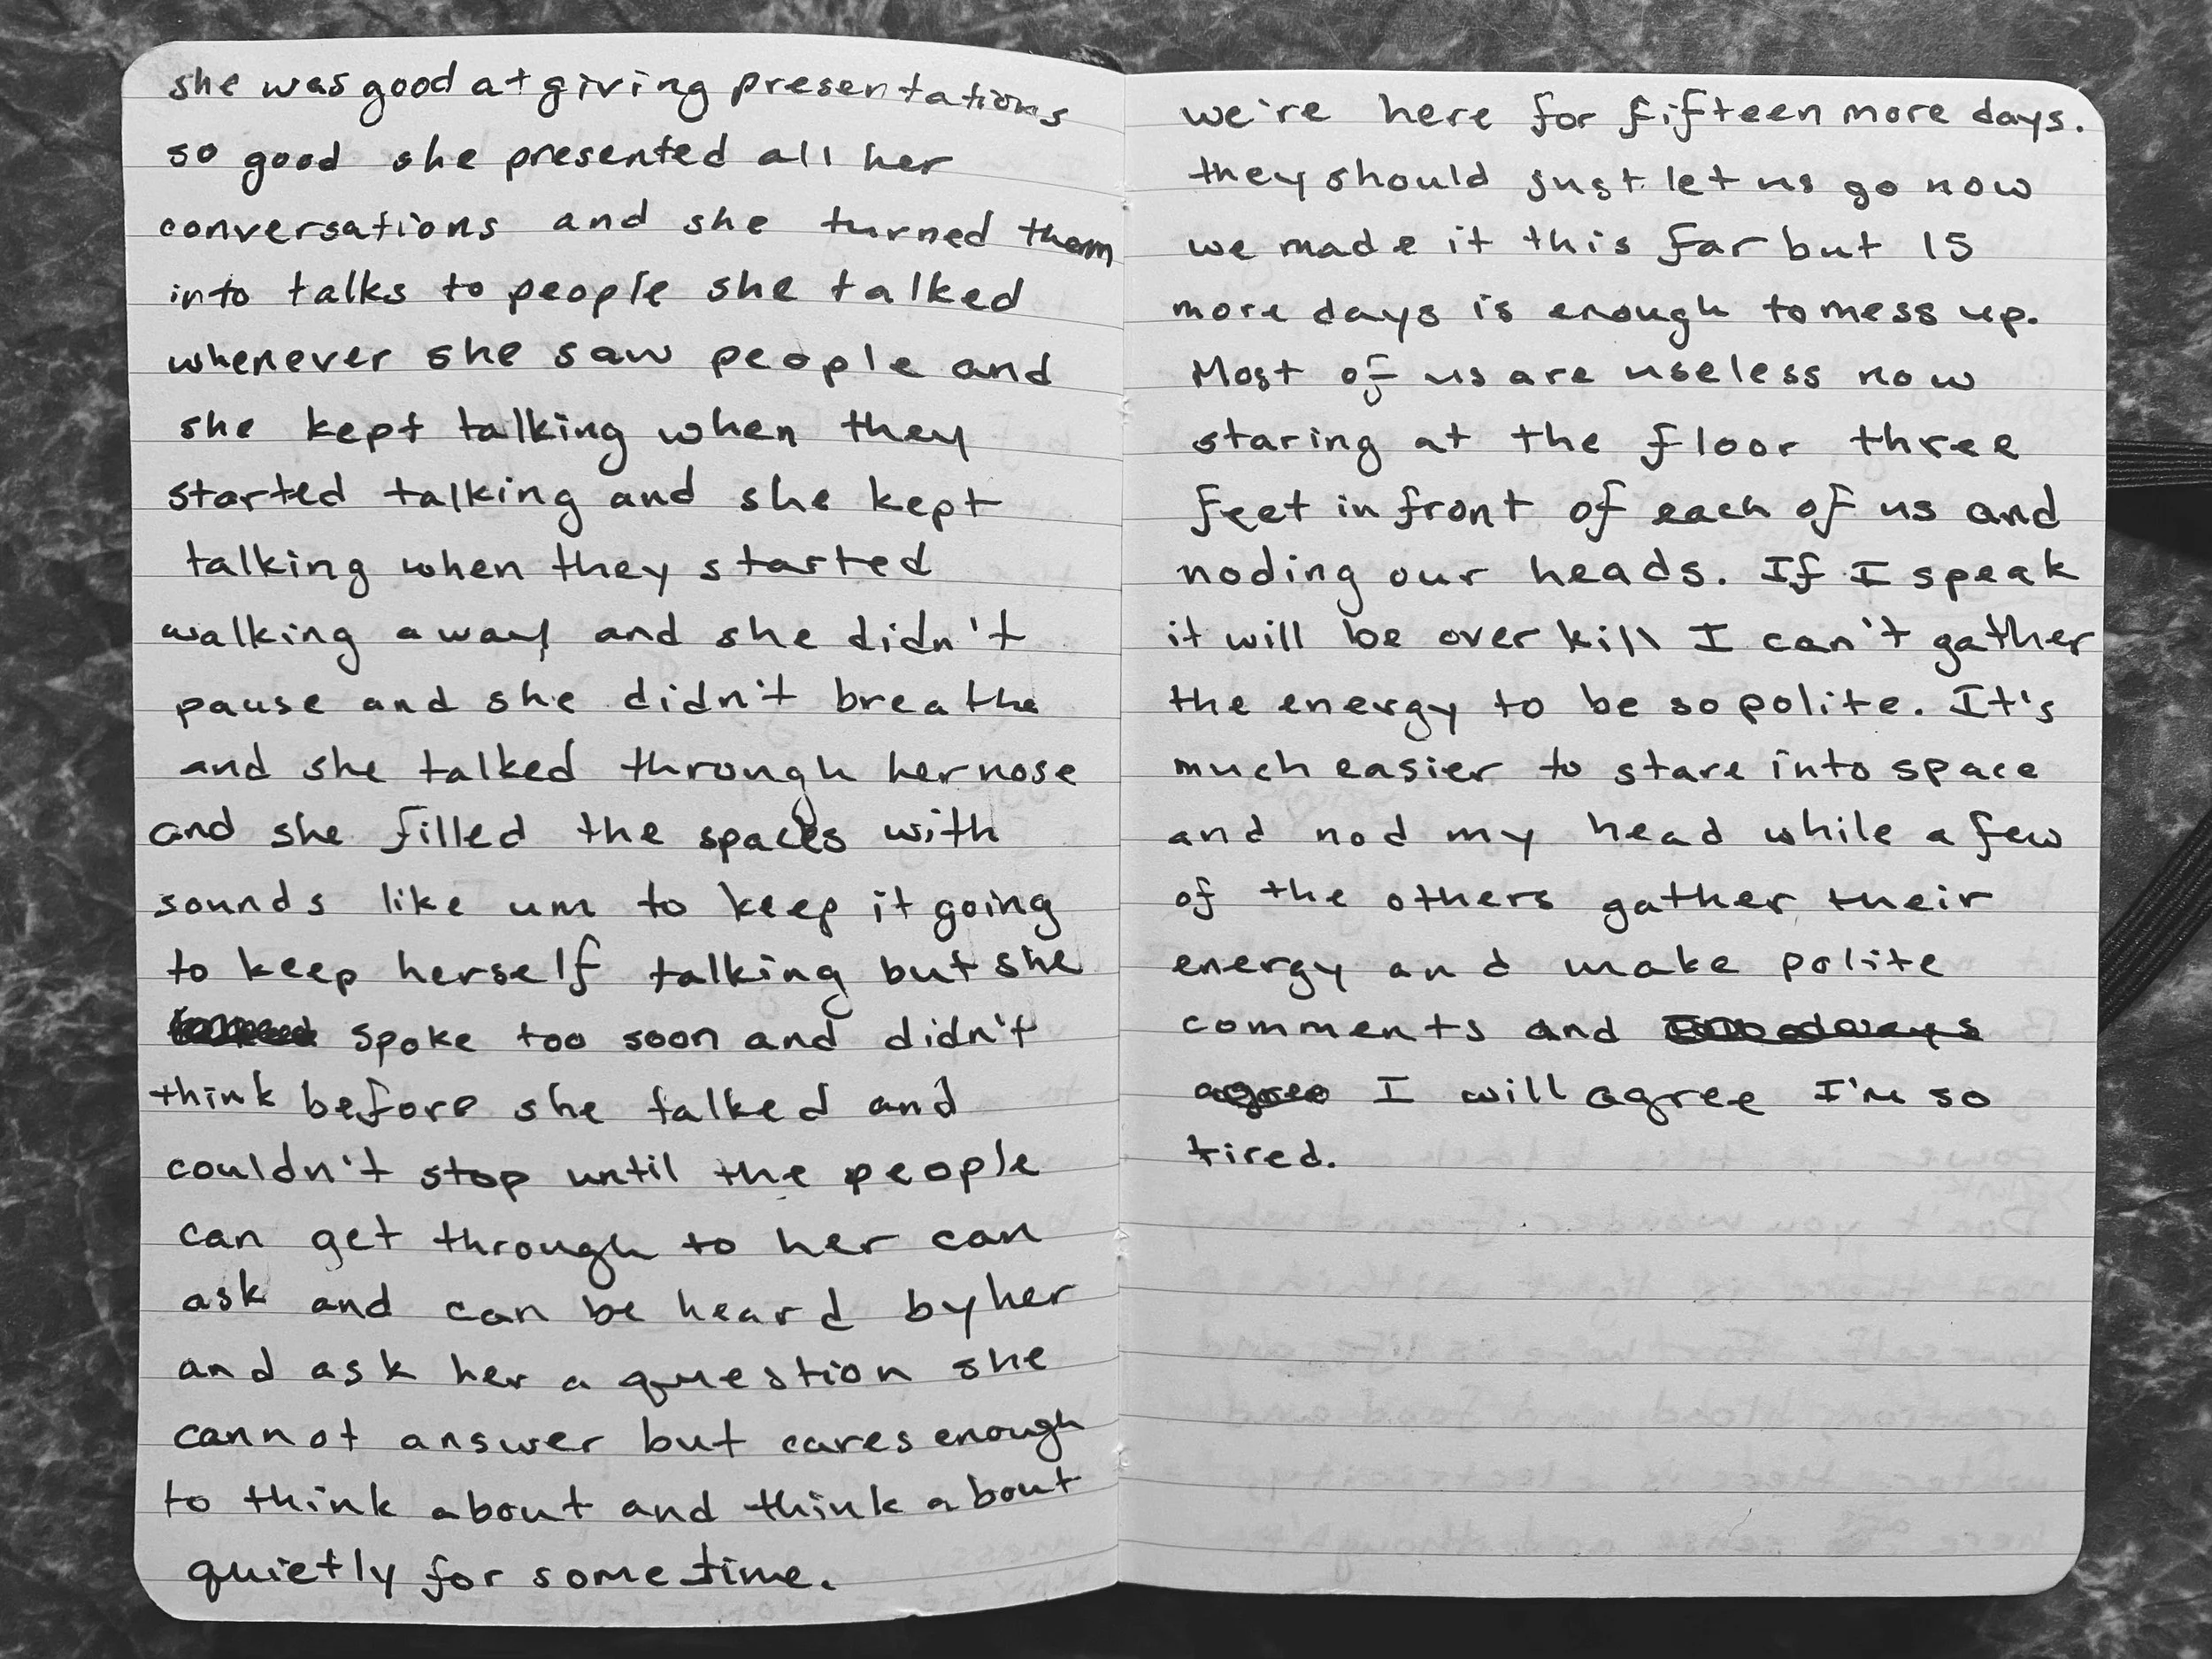 she was good at giving presentations
so good she presented all her
conversations and she turned them
into talks to people she talked
whenever she saw people and
she kept talking when they
started talking and she kept
talking when they started
walking away and she didn't
pause and she didn't breathe
and she talked through her nose
and she filled the spaces with
sounds like um to keep it going
to keep herself talking but she
spoke too soon and didn't
think before she talked and
couldn't stop until the people
can get through to her can
ask and can be heard by her
and ask her a question she
cannot answer but cares enough
to think about and think about
quietly for some time.
we're here for fifteen more days.
they should just let us go now
we made it this far but 15
more days is enough to mess up.
Most of us are useless now
staring at the floor three
feet in front of each of us and
noding our heads. If I speak
it will be over kill I can't gather
the energy to be so polite. It's
much easier to stare into space
and nod my head while a few
of the others gather their
energy and make polite
comments and
agree I will agree I'm so
tired.